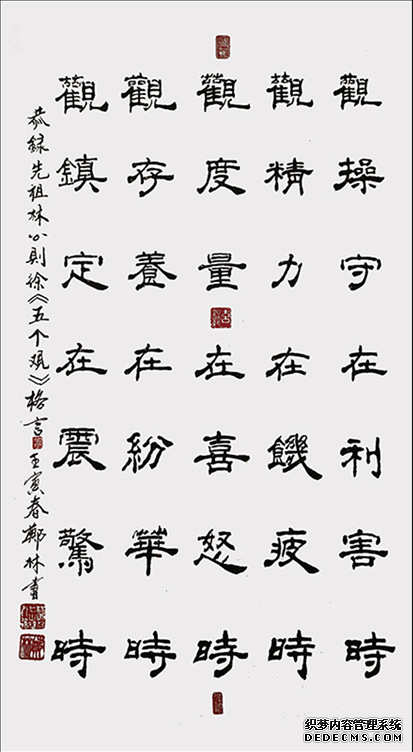 觀操守在利害時
觀精力在饑疲時
觀度量在喜怒時
觀存養在紛華時
觀鎮定在震驚時
恭録先祖林公則徐《五个观》格言 壬寅春鄭林書
织梦内容管理系统
DEDECMS.COM